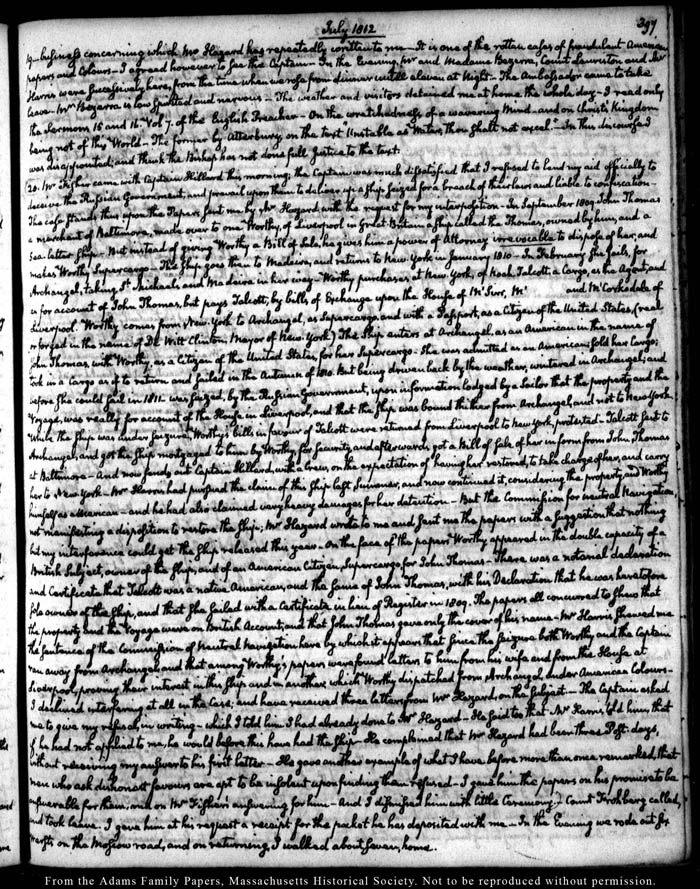 July 1812
397
19. business concerning which Mr Hazard has repeatedly written to me — It is one of the rotten cases of fraudulent American
papers and Colours — I agreed however to see the Captain — In the Evening, Mr and Madame Bezerra, Count Lauriston and Mr
Harris were successively here, from the time when we rose from dinner until eleven at Night — The Ambassador came to take
leave — Mme Bezerra is low spirited and nervous — The weather and visitors detained me at home the whole day — I read only
the Sermons 15 and 16. Vol. 7. of the English Preacher — On the wretchedness of a wavering Mind — and on Christ's Kingdom
being not of this World — The former by Atterbury, on the text "Unstable as Water, thou shalt not excel." — In this discourse I
was disappointed, and think the Bishop has not done full justice to the text.
20. Mr Fisher came with Captain Hillard this morning; the Captain was much dissatisfied that I refused to lend my aid officially to
deceive the Russian Government, and prevail upon them to deliver up a ship seized for a breach of their laws and liable to confiscation —
The case stands thus upon the Papers sent me by Mr Hazard with the request for my interposition — In September 1809 John Thomas
a merchant of Baltimore, made over to one Worthy, of Liverpool in Great-Britain a ship called the Thomas, owned by him, and a
Sea-letter ship — But instead of giving Worthy a Bill of Sale, he gives him a power of Attorney irrevocable to dispose of her; and
makes Worthy Supercargo — The Ship goes then to Madeira, and returns to New York in January 1810 — In February she sails, for
Archangel, taking St. Michaels, and Madeira in her way — Worthy purchases at New York, of Noah Talcott a Cargo, as he Agent, and
is for account of John Thomas, but pays Talcott, by bills of Exchange upon the House of Mc'Iver, Mc' and McCorkadale of
Liverpool. Worthy comes from New-York to Archangel, as Supercargo and with a Passport, as a Citizen of the United States, (real
or forged in the name of De Witt Clinton Mayor of New-York) The Ship enters at Archangel, as an American in the name of
John Thomas, with Worthy, as a Citizen of the United States, for her Supercargo — She was admitted as an American; sold her Cargo;
took in a Cargo as if to return and sailed in the Autumn of 1810. But being driven back by the weather, wintered in Archangel; and
before she could sail in 1811 was seized, by the Russian Government, upon information lodged by a Sailor that the property and the
Voyage, was really for account of the House in Liverpool, and that the Ship was bound thither from Archangel, and not to New York.
While the Ship was under Seizure, Worthy's bills in favour of Talcott were returned from Liverpool to New York, protested — Talcott sent to
Archangel, and got the Ship mortgaged to him by Worthy, for Security and afterwards got a Bill of Sale of her in form from John Thomas
at Baltimore — And now sends out Captain Hillard, with a crew, on the expectation of having her restored, to take charge of her, and carry
her to New York — Mr Harris had pursued the claim of this Ship last Summer, and now continued it, considering the property, and Worthy
himself as American — and he had also claimed very heavy damages for her detention — But the Commission for neutral Navigation,
not manifesting a disposition to restore the Ship; Mr Hazard wrote to me and sent me the papers with a suggestion that nothing
but my interference could get the Ship released this year — On the face of the papers Worthy appeared in the double capacity of a
British Subject, owner of the Ship, and of an American Citizen, Supercargo, for John Thomas — There was a notarial declaration
and Certificate that Talcott was a native American, and the same of John Thomas, with his Declaration that he was heretofore
sole owner of the Ship, and that she sailed with a Certificate in lieu of Register in 1809. The papers all concurred to shew that
the property and the Voyage were on British Account, and that John Thomas gave only the cover of his name — Mr Harris shewed me
the sentence of the Commission of Neutral Navigation here by which it appears that since the Seizure both Worthy, and the Captain
ran away from Archangel, and that among Worthy's papers were found letters to him from his wife and from the House at
Liverpool, proving their interest in this Ship and in another, which Worthy dispatched from Archangel, under American Colours —
I declined interfering at all in the Case, and have received three letters from Mr Hazard, on the Subject — The Captain asked
me to give my refusal in writing — which I told him I had already done to Mr Hazard — He said too that Mr Harris told him, that
if he had not applied to me, he would before this have had the Ship — He complained that Mr Hazard had been three Post-days,
without receiving my answer to his first letter — He gave another example of what I have before more than once remarked, that
men who ask dishonest favours are apt to be insolent upon finding them refused — I gave him the papers on his promise to be
answerable for them, and on Mr Fisher's answering for him — And I dismissed him with little Ceremony. — Count Frohberg called,
and took leave. I gave him at his request a receipt for the packet he has deposited with me — In the Evening we rode out six
wersts on the Moscow road, and on returning, I walked about seven, home.
From the Adams Family Papers, Massachusetts Historical Society. Not to be reproduced without permission.